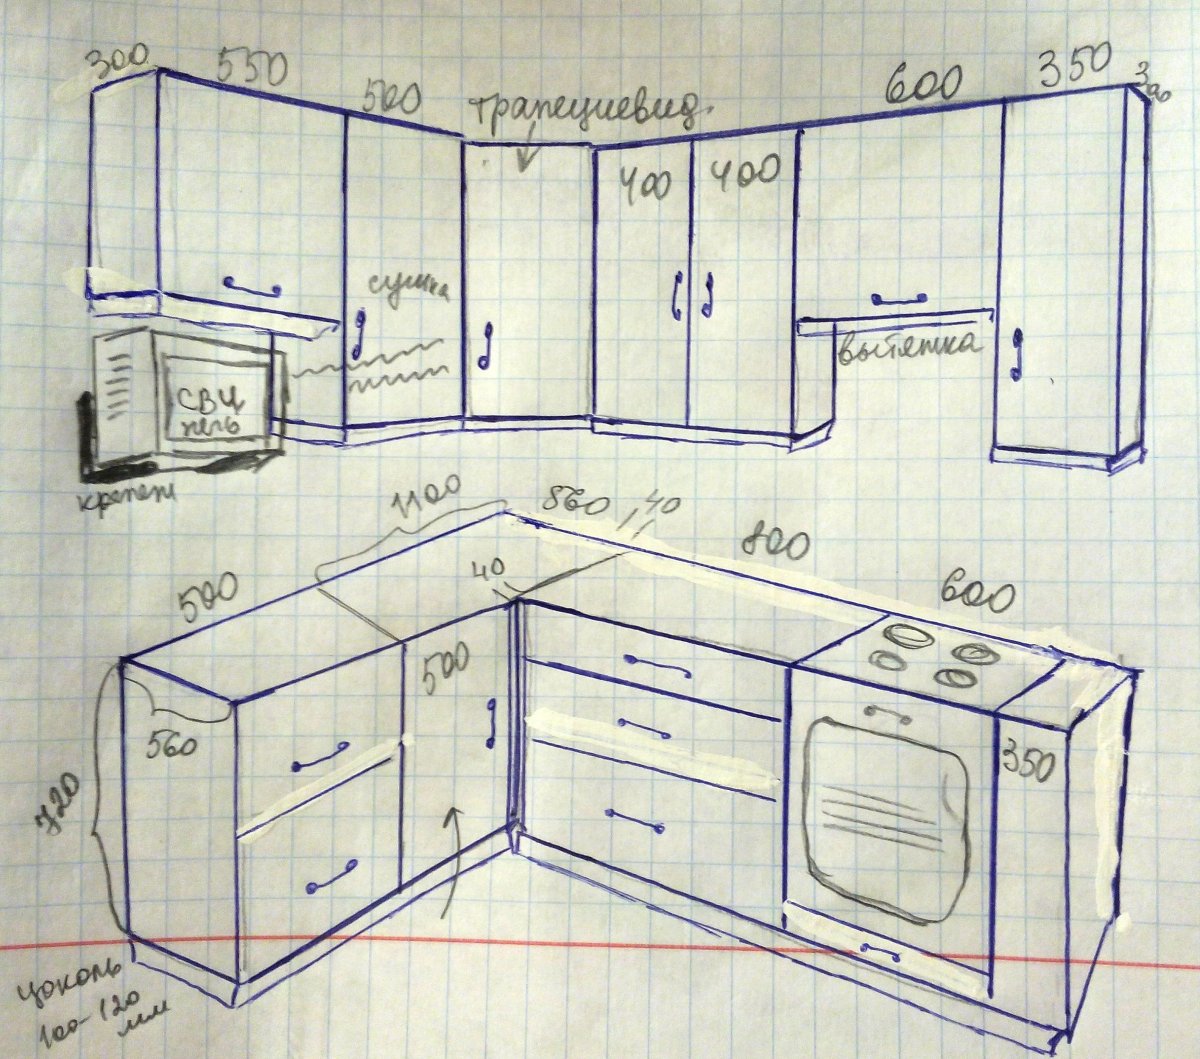 300
550
500
трапециевид.
600
350
300
400
400
сушка
вытяжка
СВЧ
печь
крепеж
1100
560
40
800
600
500
40
500
560
350
720
цоколь
100-120
мм